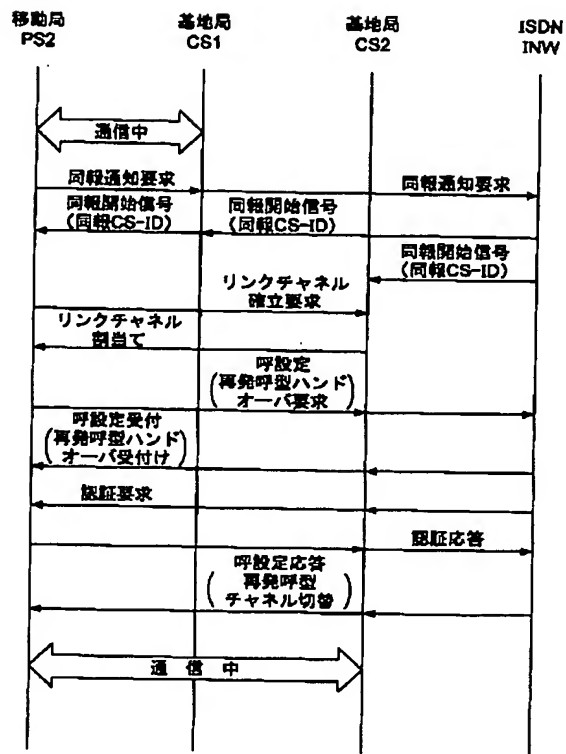 移動局
PS2
基地局
CS1
基地局
CS2
ISDN
INW
通信中
同報通知要求
同報通知要求
同報開始信号
(同報CS-ID)
同報開始信号
(同報CS-ID)
同報開始信号
(同報CS-ID)
リンクチャネル
確立要求
リンクチャネル
割当て
呼設定
(再発呼型ハンド
オーバ要求)
呼設定受付
(再発呼型ハンド
オーバ受付け)
認証要求
認証応答
呼設定応答
(再発呼型
チャネル切替)
通信中